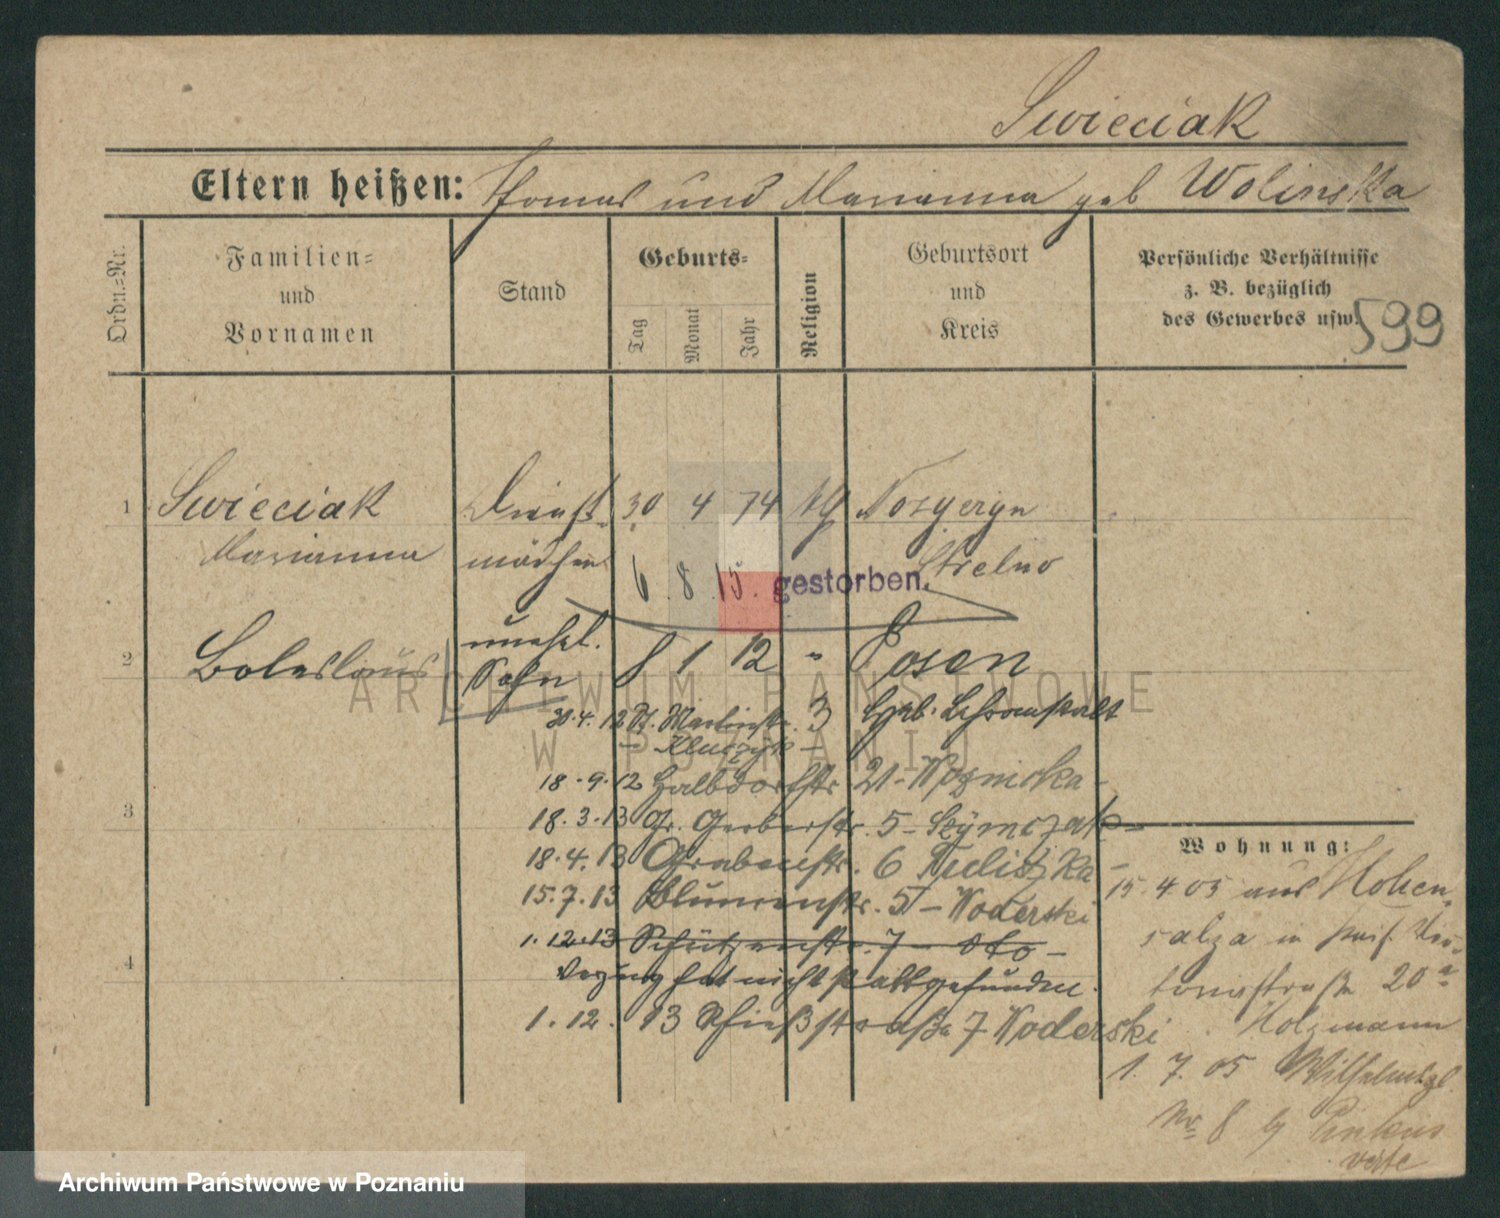 Swieciak
Eltern heißen: Thomas und Marianna geb Wolinska
Ordn.-Nr.
Familien- und Vornamen
Stand
Geburts-
Tag
Monat
Jahr
Religion
Geburtsort und Kreis
Persönliche Verhältnisse
z. B. bezüglich
des Gewerbes usw.
599
1 Swieciak Dienst- 30 4 74
Marianna mädchen Strelno
6. 8. 15. gestorben.
2 Boleslaus unehl. Sohn 8 1 12 " Posen
ARCHIWUM PAŃSTWOWE
W POZNANIU
20.4.12 St. Martinstr. 3 Heb. Lehranstalt
18.9.12 Halbdorfstr 21 -
3
18.3.13 Gr. Gerberstr. 5 - Szymczak -
18.4.13 Grabenstr. 6 -
15.7.13 Blumenstr. 5 - Woderski
1.12.13 Schützenstr. 7 - dto -
4
Verzug hat nicht stattgefunden.
1.12.13 Schießstraße 7 Woderski
Wohnung:
15.4.05 aus Hohen-
salza in
20a
Holzmann
1. 7. 05 Wilhelmspl.
Nr 8 Pinkus
verte
Archiwum Państwowe w Poznaniu